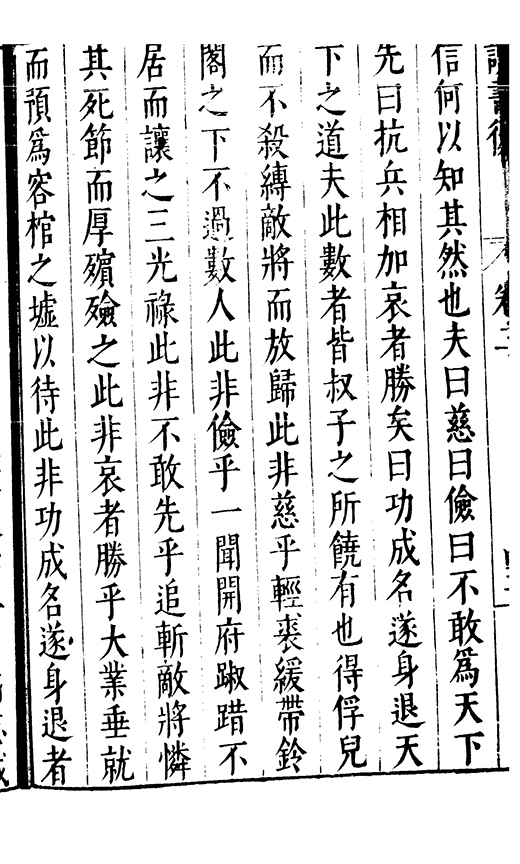 讀書後 卷二
信何以知其然也夫曰慈曰儉曰不敢爲天下
先曰抗兵相加哀者勝矣曰功成名遂身退天
下之道夫此數者皆叔子之所饒有也得俘兒
而不殺縛敵將而放歸此非慈乎輕裘緩帶鈴
閣之下不過數人此非儉乎一聞開府踧踖不
居而讓之三光祿此非不敢先乎追斬敵將憐
其死節而厚殯殮之此非哀者勝乎大業垂就
而預爲容棺之墟以待此非功成名遂身退者